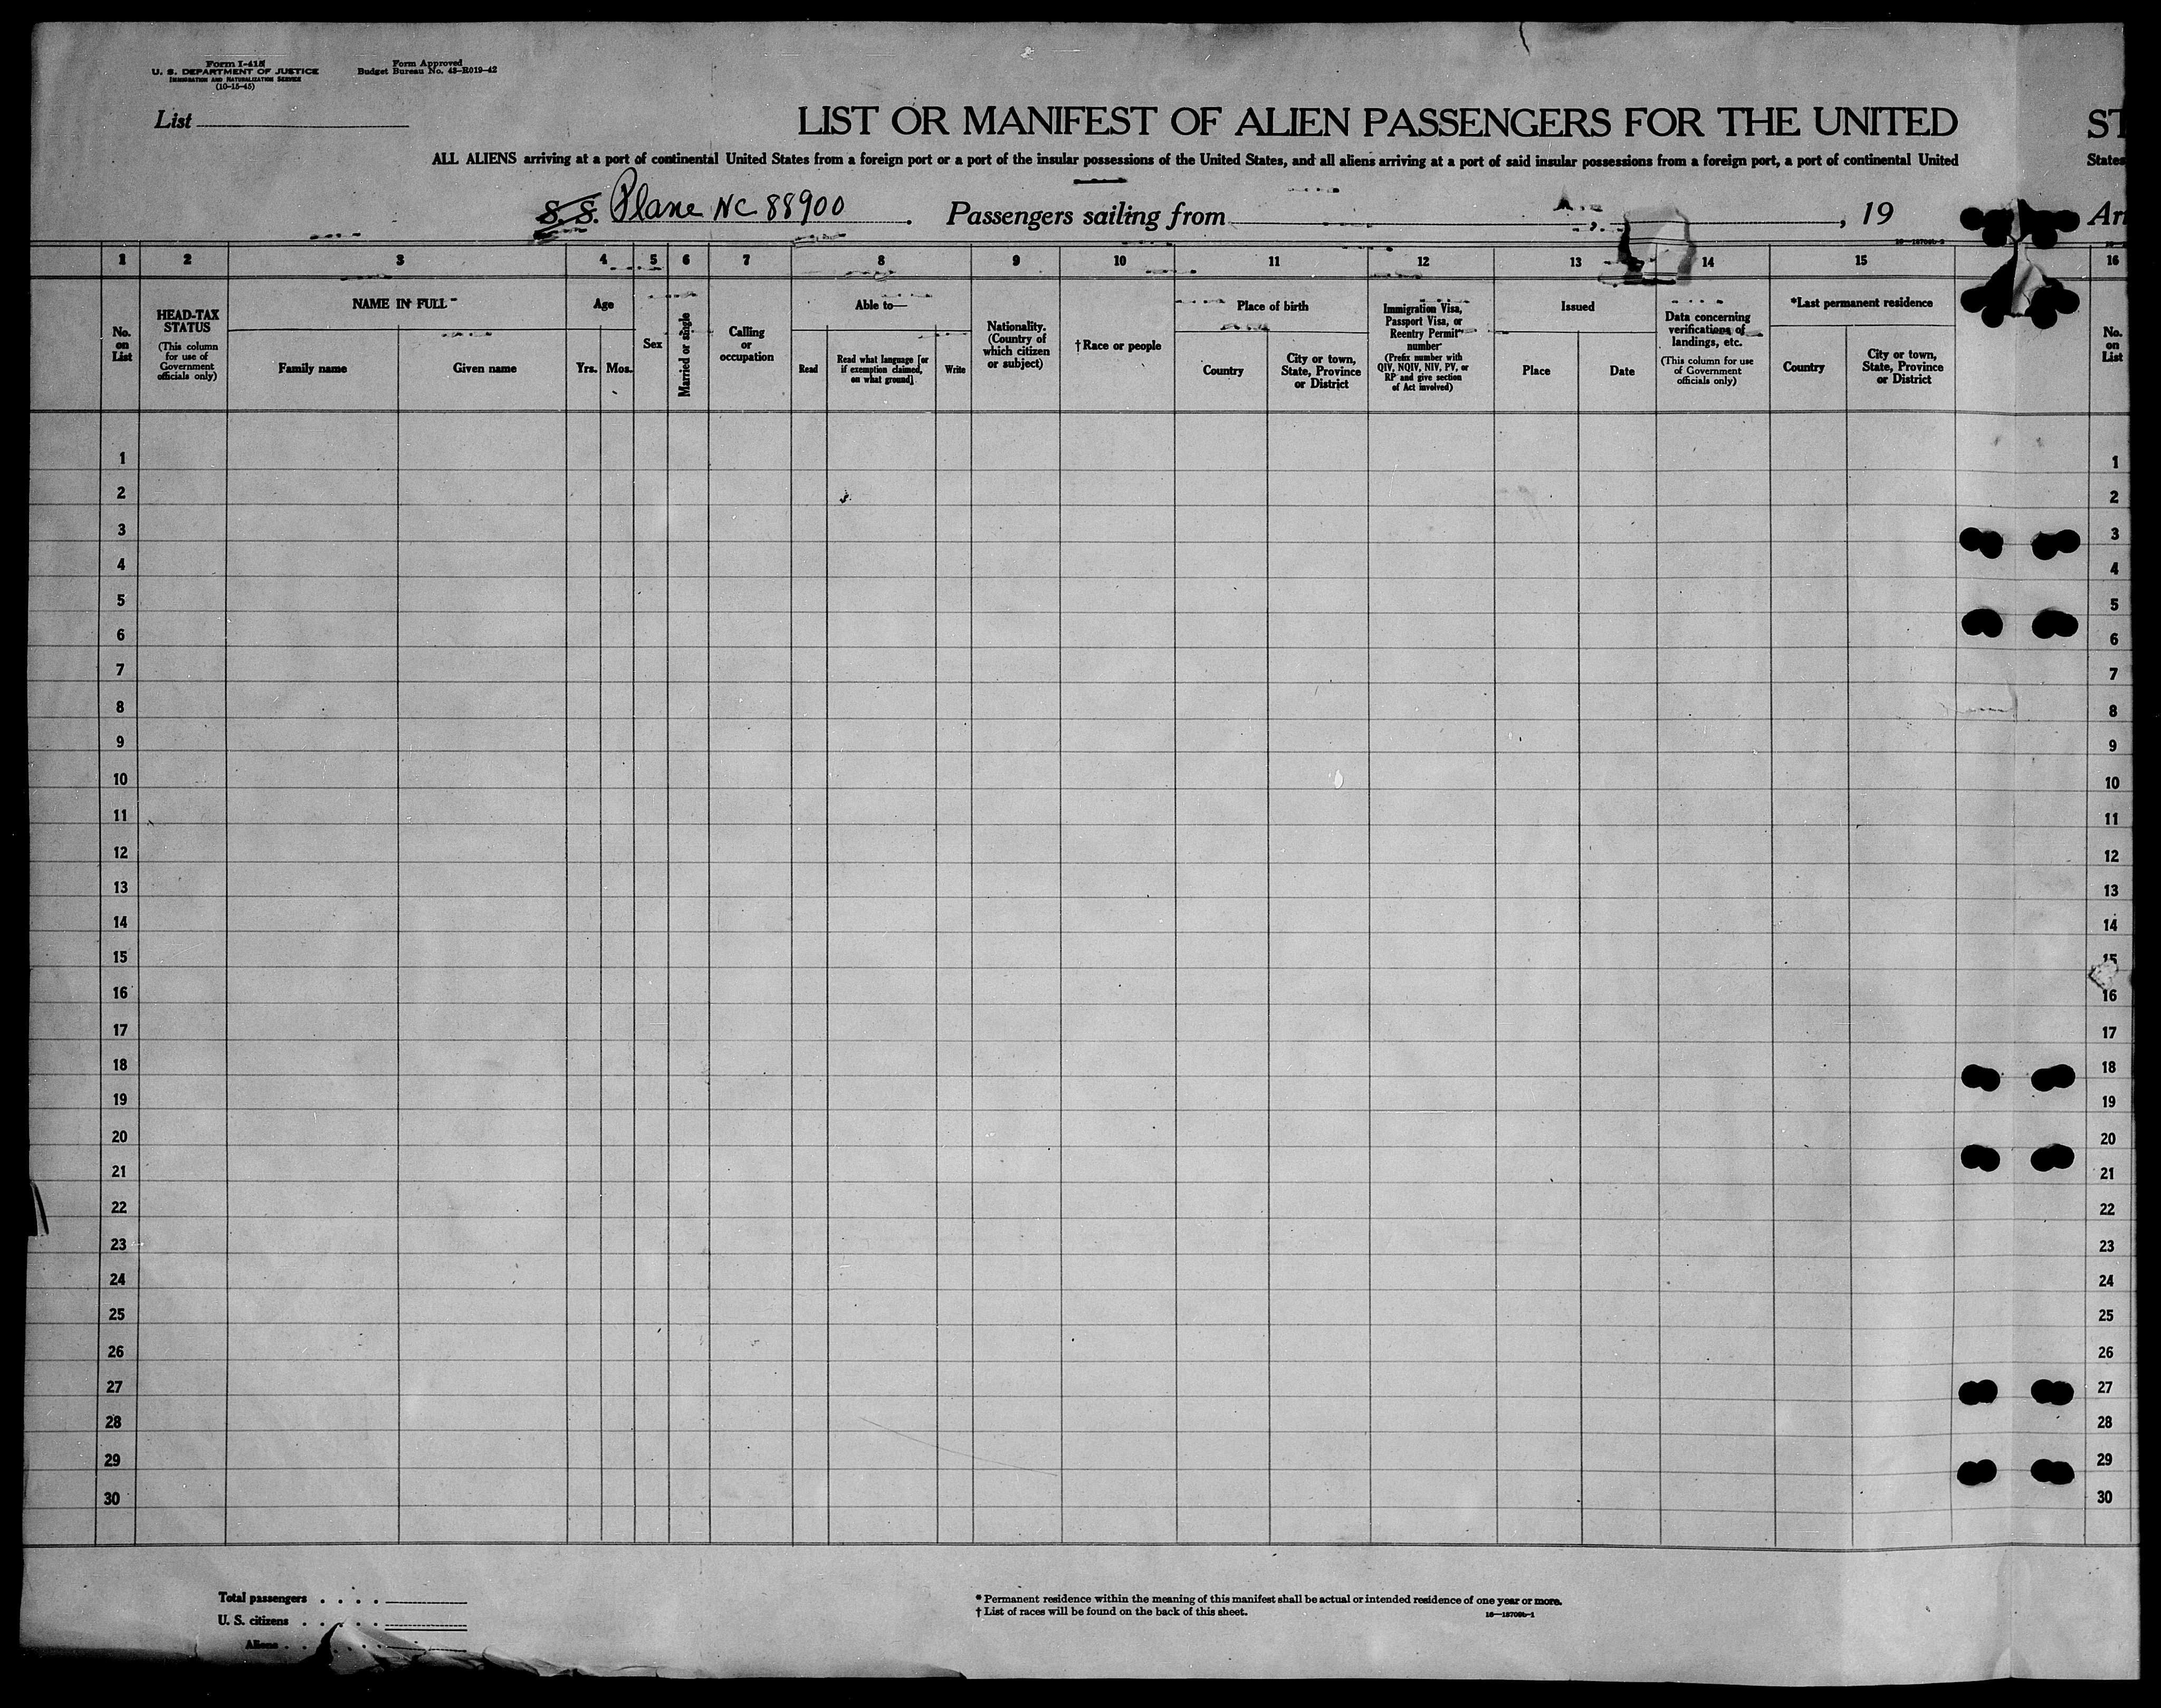 Form I-415
U. S. DEPARTMENT OF JUSTICE
IMMIGRATION AND NATURALIZATION SERVICE
(10-15-45)
Form Approved
Budget Bureau No. 43-R019-42
List
LIST OR MANIFEST OF ALIEN PASSENGERS FOR THE UNITED ST
ALL ALIENS arriving at a port of continental United States from a foreign port or a port of the insular possessions of the United States, and all aliens arriving at a port of said insular possessions from a foreign port, a port of continental United States
S. S. Plane NC 88900 . Passengers sailing from , , 19 Arr
1 2 3 4 5 6 7 8 9 10 11 12 13 14 15 16
No. on List
HEAD-TAX STATUS
(This column for use of Government officials only)
NAME IN FULL
Family name
Given name
Age
Yrs. Mos.
Sex
Married or single
Calling or occupation
Able to—
Read
Read what language [or if exemption claimed, on what ground]
Write
Nationality. (Country of which citizen or subject)
†Race or people
Place of birth
Country
City or town, State, Province or District
Immigration Visa, Passport Visa, or Reentry Permit number
(Prefix number with QIV, NQIV, NIV, PV, or RP and give section of Act involved)
Issued
Place
Date
Data concerning verifications of landings, etc.
(This column for use of Government officials only)
*Last permanent residence
Country
City or town, State, Province or District
No. on List
1 1
2 2
3 3
4 4
5 5
6 6
7 7
8 8
9 9
10 10
11 11
12 12
13 13
14 14
15 15
16 16
17 17
18 18
19 19
20 20
21 21
22 22
23 23
24 24
25 25
26 26
27 27
28 28
29 29
30 30
Total passengers . . . .
U. S. citizens . . . . .
Aliens . . . . . .
* Permanent residence within the meaning of this manifest shall be actual or intended residence of one year or more.
† List of races will be found on the back of this sheet.